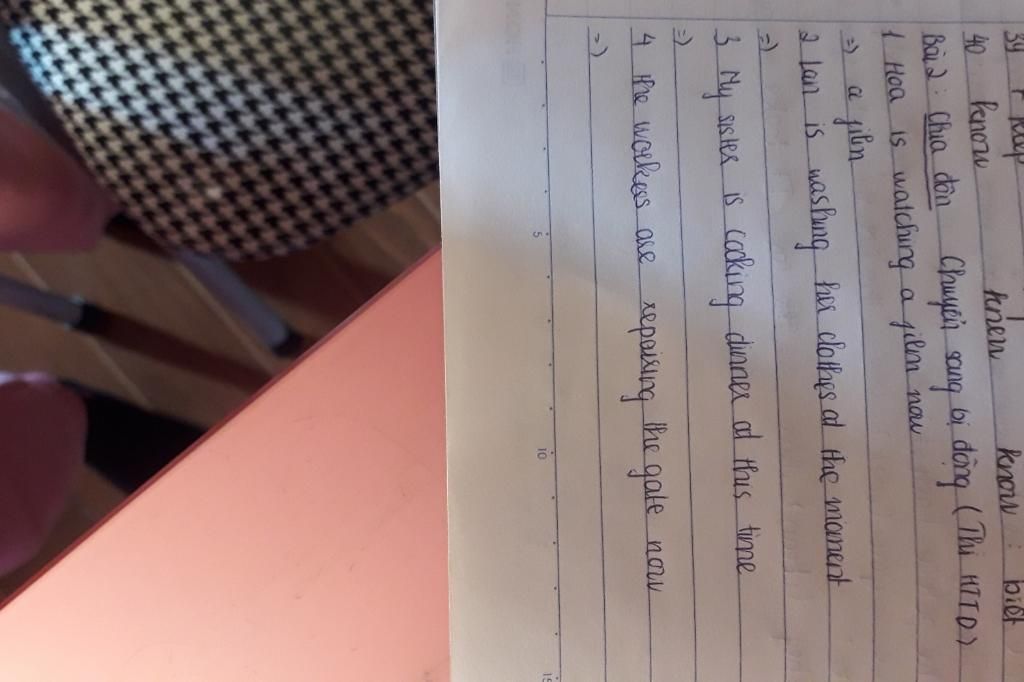 40 know knew known : biết
Bài 2 : Chia đàn Chuyển sang bị động ( Thì HTTD )
1 Hoa is watching a film now
=) a film
2 Lan is washing her clothes at the moment
=)
3 My sister is cooking dinner at this time
=)
4 the workers are repairing the gate now
=)
5 10 15